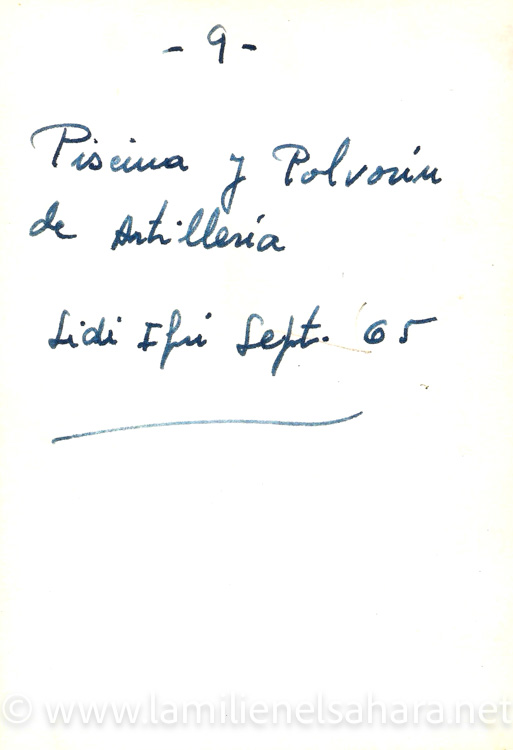 - 9 -
Piscina y Polvorín
de Artillería
Sidi Ifni Sept. 65
© www.lamilienelsahara.net